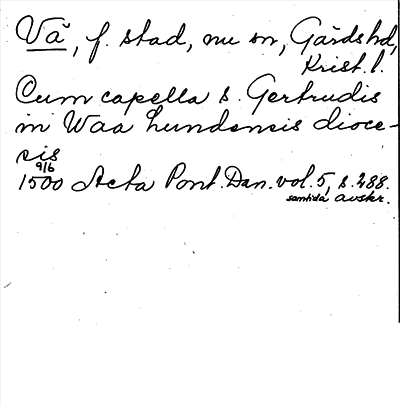 Vä, f. stad, nu sn, Gärds hd,
Krist. l.
Cum capella s. Gertrudis
in Waa lundensis dioce-
sis
9/6
1500 Acta Pont. Dan. vol. 5, s. 288.
samtida avskr.